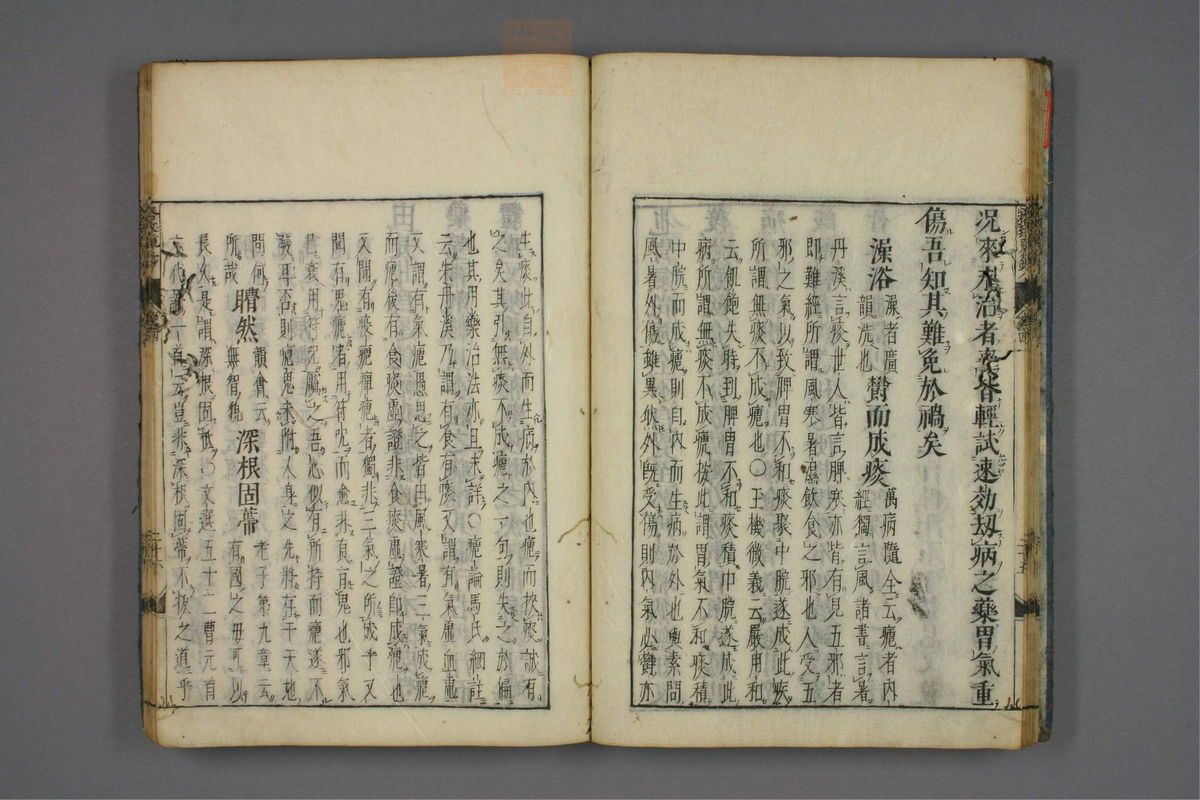 况來求治者率皆輕試速効刼病之藥胃氣重
傷吾知其難免於禍矣
澡浴 澡者廣韻洗也 鬱而成痰 萬病隨全云瘧者内經獨言風諸書言暑
丹溪言痰世人皆言脾寒亦皆有見五邪者
即難經所謂風寒暑濕飲食之邪也人受五
邪之氣以致脾胃不和痰聚中脘遂成此疾
所謂無痰不成瘧也〇玉機微義云嚴用和
云飢飽失時到脾胃不和痰積中脘遂成此
病所謂無痰不成瘧按此謂胃氣不和痰積
中脘而成瘧則自内而生病於外也與素問
風暑外傷雖異然外既受傷則内氣必鬱亦
生痰此自外而生病於内也瘧而挾痰誠有
之矣其引無痰不成瘧之一句則失之於偏
也其用藥治法亦且未詳〇瘧論馬氏細註
云朱丹溪乃謂有食有痰又謂有氣虚血虚
又謂有氣瘧愚思之皆由風寒暑三氣成瘧
而後有食痰虚證非食痰虚證即成瘧也
又聞有痰瘧瘴瘧者獨非三氣之所成乎又
聞有思瘧者用符呪而愈非眞有鬼也邪氣
已衰用符呪厭之吾心似有所恃而瘧遂不
發耳否則瘧鬼未附人身之先將存于天地
間何所哉 睛然 韻會云無智貌 深根固蔕 老子第九章云有國之母可以
長久是謂深根固柢〇文選五十二曹元首
六代論一章云豈非深根固蔕不拔之道乎